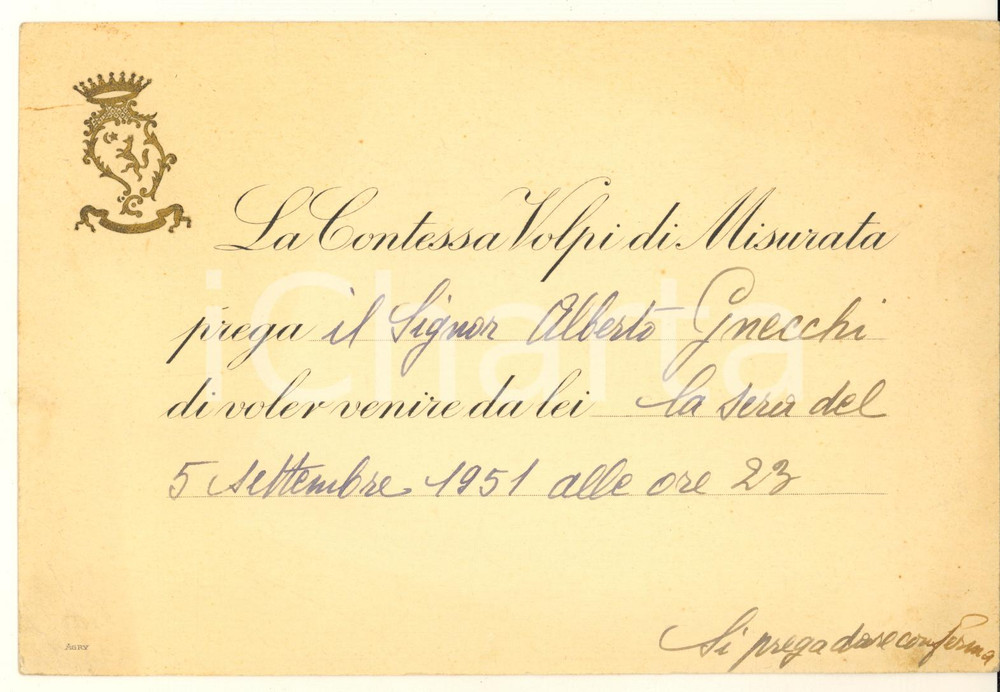 La Contessa Volpi di Misurata
prega il Signor Alberto Gnecchi
di voler venire da lei la sera del
5 settembre 1951 alle ore 23
Si prega dare conferma
iCharta